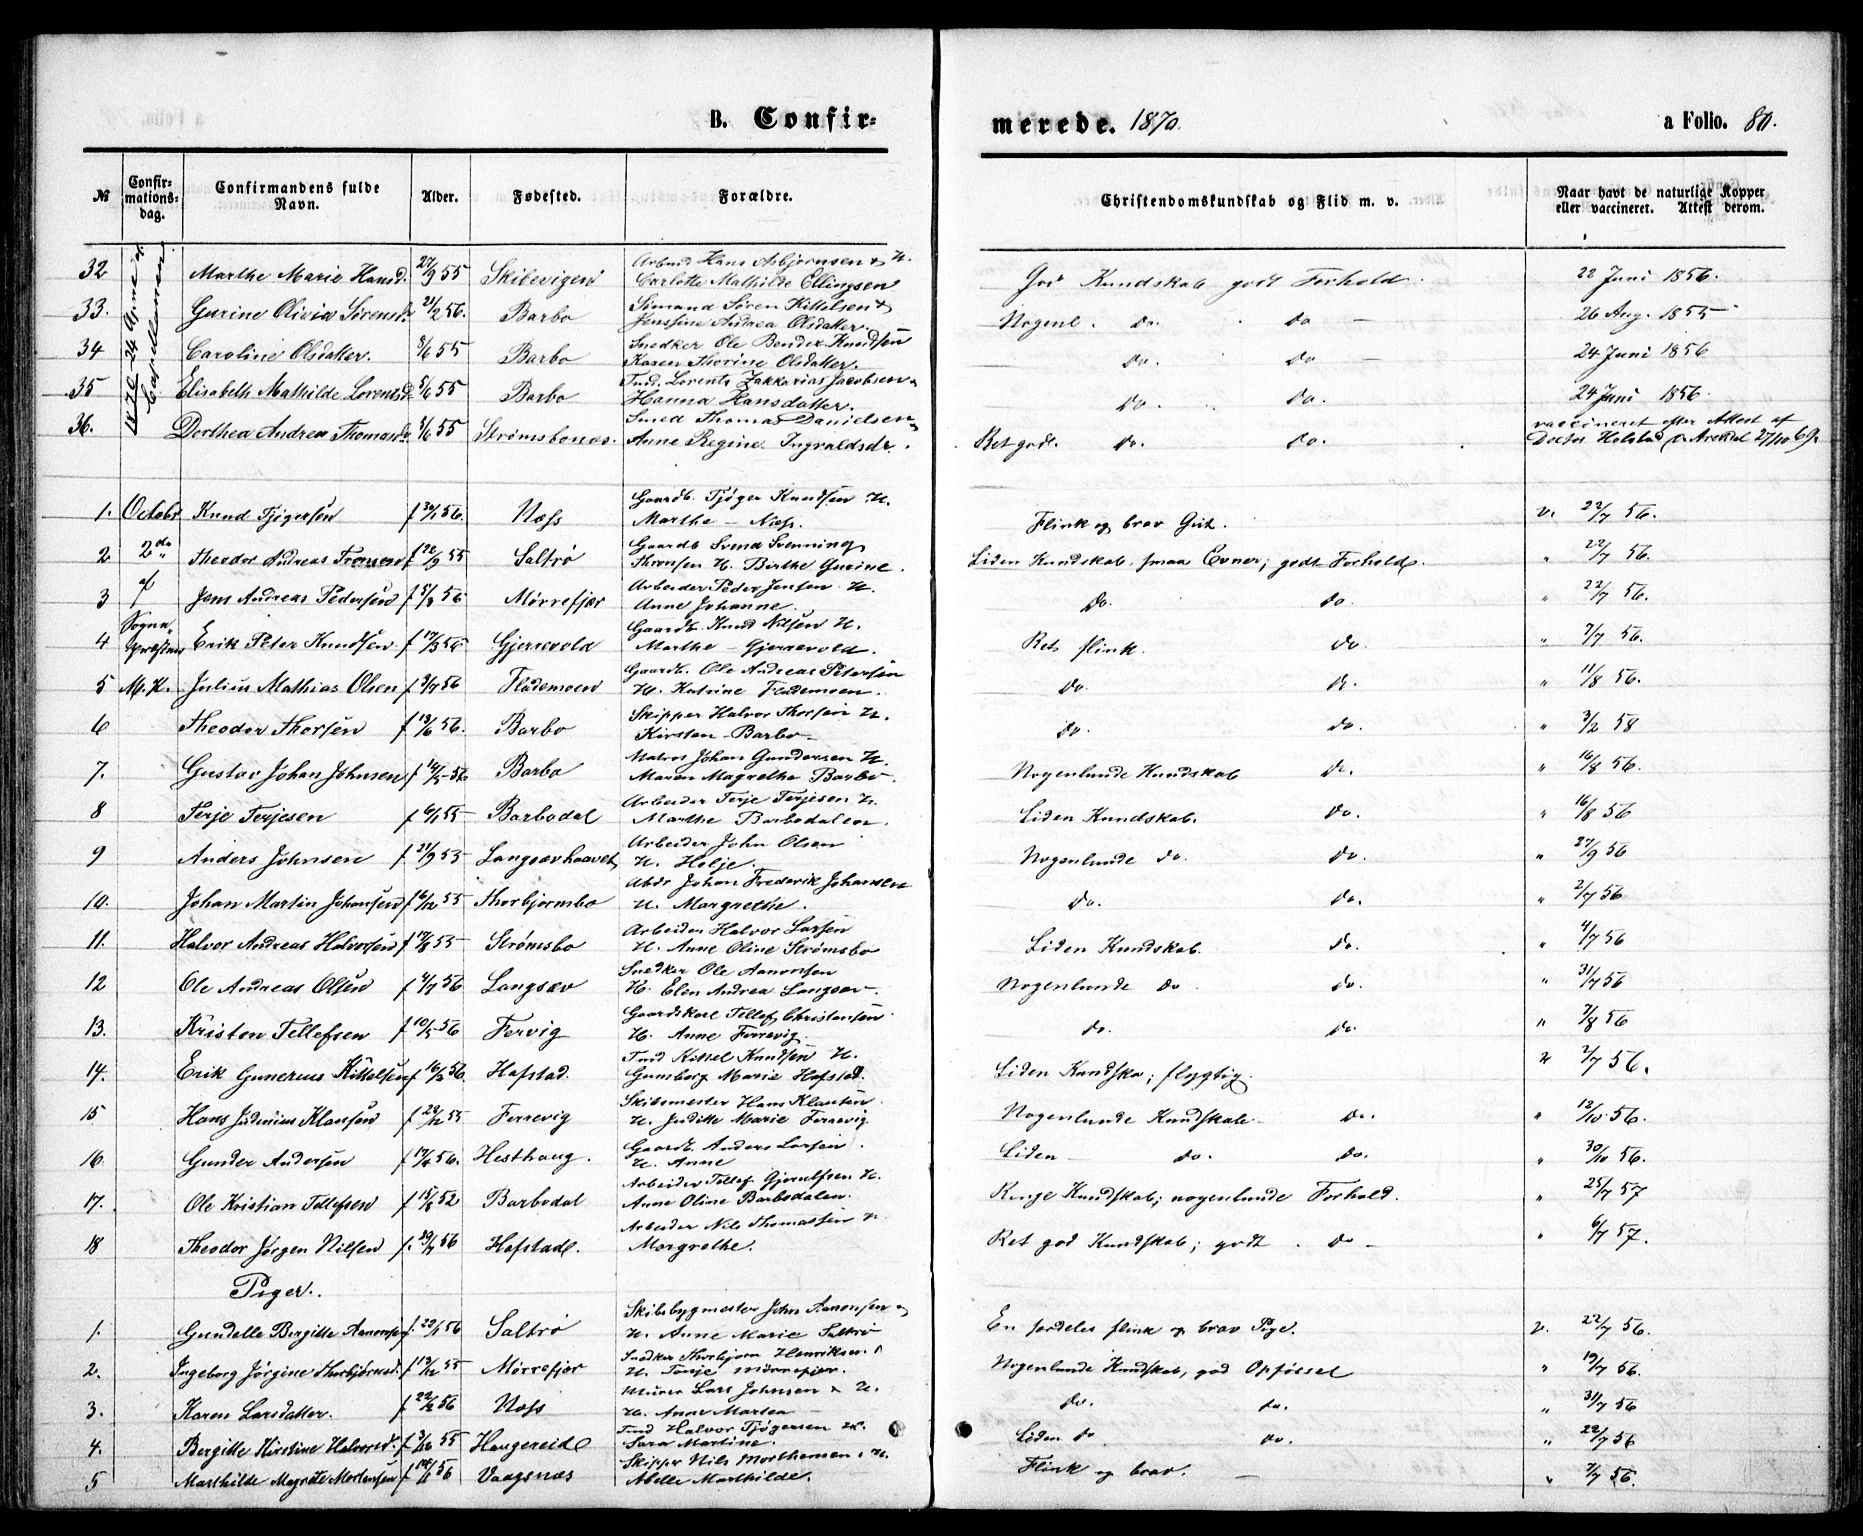 B. Confir-
merede. 1870.
a Folio. 80.
№
Confir-
mations-
dag.
Confirmandens fulde
Navn.
Alder.
Fødested.
Forældre.
Christendomskundskab og Flid m. v.
Naar havt de naturlige Kopper
eller vaccineret. Attest derom.
32 Marthe Marie Hansd. 27/9 55 Skibevigen Arbmd Hans Asbjørnsen & H.
Carlotte Mathilde Ellingsen God Kundskab godt Forhold. 22 Juni 1856.
33. Gurine Olivia Sørensd. 21/2 56. Barbo Sømand Søren Kittelsen &
Jenssine Andrea Olsdatter. Nogenl. do. do 26 Aug. 1855
34 Caroline Olsdatter. 5/6 55 Barbo Snedker Ole Bender Knudsen
Karen Thorine Olsdatter. do. do 24 Juni 1856
35 Elisabeth Mathilde Lorentsd. 5/6 55 Barbo Tmd. Lorents Zakkarias Jacobsen
Hanna Hansdatter. do. do. 24 Juni 1856.
36. Dorthea Andrea Thomasd. 5/6 55 Strømsbones Smed Thomas Danielsen
Anne Regine Ingvaldsdr. Ret godt. do. do. vaccineret efter Attest af
Doctor Holstad Arendal 27/10 69.
1. Octobr Knud Tjøgersen f 30/1 56. Næss Gaardb. Tjøger Knudsen H.
Marthe — Næss. Flink og brav Gut. v. 22/7 56.
2 2den Theodor Andreas f 12/9 55 Saltrø Gaardb Svend Svenning
H. Birthe Gurine. Liden Kundskab, smaa Evner; godt Forhold. " 22/7 56.
3 af Jens Andreas Pedersen f 5/3 56 Mørrefjær Arbeider Peder Jensen H.
Anne Johanne. do. do. " 22/7 56.
4 Sogne-
præsten Erik Peter Knudsen f 17/3 56 Gjerrevold Gaardb. Knud Nilsen H.
Marthe — Gjerrevold. Ret flink. do. " 7/7 56.
5 M.K. Julius Mathias Olsen f 3/7 56 Flademoen Gaardb. Ole Andreas Petersen
H. Katrine Flademoen. do. do. " 11/8 56.
6 Theodor Thorsen f 13/6 56. Barbo Skipper Halvor Thorsen H.
Kirsten Barbo do. do. " 3/2 58
7. Gustav Johan Johnsen f 14/5 56. Barbo Matros Johan Gundersen H.
Maren Magrethe Barbo. Nogenlunde Kundskab do. " 16/8 56.
8 Terje Terjesen f 6/1 55 Barbodal Arbeider Terje Terjesen H.
Marthe Barbodalen. Liden Kundskab. do. " 16/8 56
9 Anders Johnsen f 21/9 53 Langsævhaavet Arbeider John Olsen
H. Helje. Nogenlunde do. do. " 27/9 56
10. Johan Martin Johansen f 16/12 55 Thorbjørnsbo Abdr Johan Frederik Johansen
H. Margrethe. do. do. " 2/7 56
11. Halvor Andreas Halvorsen f 17/8 55 Strømsbo Arbeider Halvor Larsen
H. Anne Oline Strømsbo Liden Kundskab. do. " 4/7 56
12 Ole Andreas Olsen f 4/7 56 Langsæv Snedker Ole Aanonsen
H. Elen Andrea Langsæv. Nogenlunde do do. " 31/7 56
13. Kristen Tellefsen f 10/5 56 Fervig Gaardskarl Tellef Christensen
H. Anne Ferrevig. do. do. " 7/8 56
14. Erik Gunerius Kittelsen f 16/3 56. Hafstad. Tmd Kittel Knudsen H.
Gunborg Marie Hafstad. Liden Kundskab; flygtig. " 2/7 56.
15 Hans Judenius Klausen f 22/12 55 Ferrevig Skibsmester Hans Klausen
H. Juditte Marie Ferrevig Nogenlunde Kundskab do. " 12/10 56.
16. Gunder Andersen f 17/4 56. Hesthaug. Gaardb. Anders Larsen.
H. Anne Liden do. do. " 30/10 56.
17. Ole Kristian Tellefsen f 15/8 52 Barbodal Arbeider Tellef Gjerulfsen H.
Anne Oline Barbodalen. Ringe Kundskab; nogenlunde Forhold. " 25/7 57
18 Theodor Jørgen Nilsen f. 29/7 56 Hafstad. Arbeider Nils Thomassen H.
Margrethe. Ret god Kundskab; godt do " 6/7 57.
Piger.
1. Gundelle Bergitte Aanonsen f. 22/1 56 Saltrø Skibsbygmester John Aanonsen
H. Anne Marie Saltrø En særdeles flink og brav Pige. v. 22/7 56.
2. Ingeborg Jørgine Thorbjørnsd. f 12/12 55 Mørrefjær Snedker Thorbjørn Henriksen
H. Terje Mørrefjær. Nogenlunde Kundskab, god Opførsel " 19/7 56.
3. Karen Larsdatter. f 22/2 56 Næss Murer Lars Johnsen & H.
H. Anne Martea do. do. " 31/7 56
4. Bergitte Kirstine Halvorsd. f 3/12 55 Haugereid Tmd Halvor Tjøgersen H.
Sara Martine. Liden do do. " 22/7 56
5 Marthilde Magrete Mortensen f 56 Vaagsnæs Skipper Nils Morthensen H.
Abelle Marthilde. Flink og brav. — " 7/7 56.